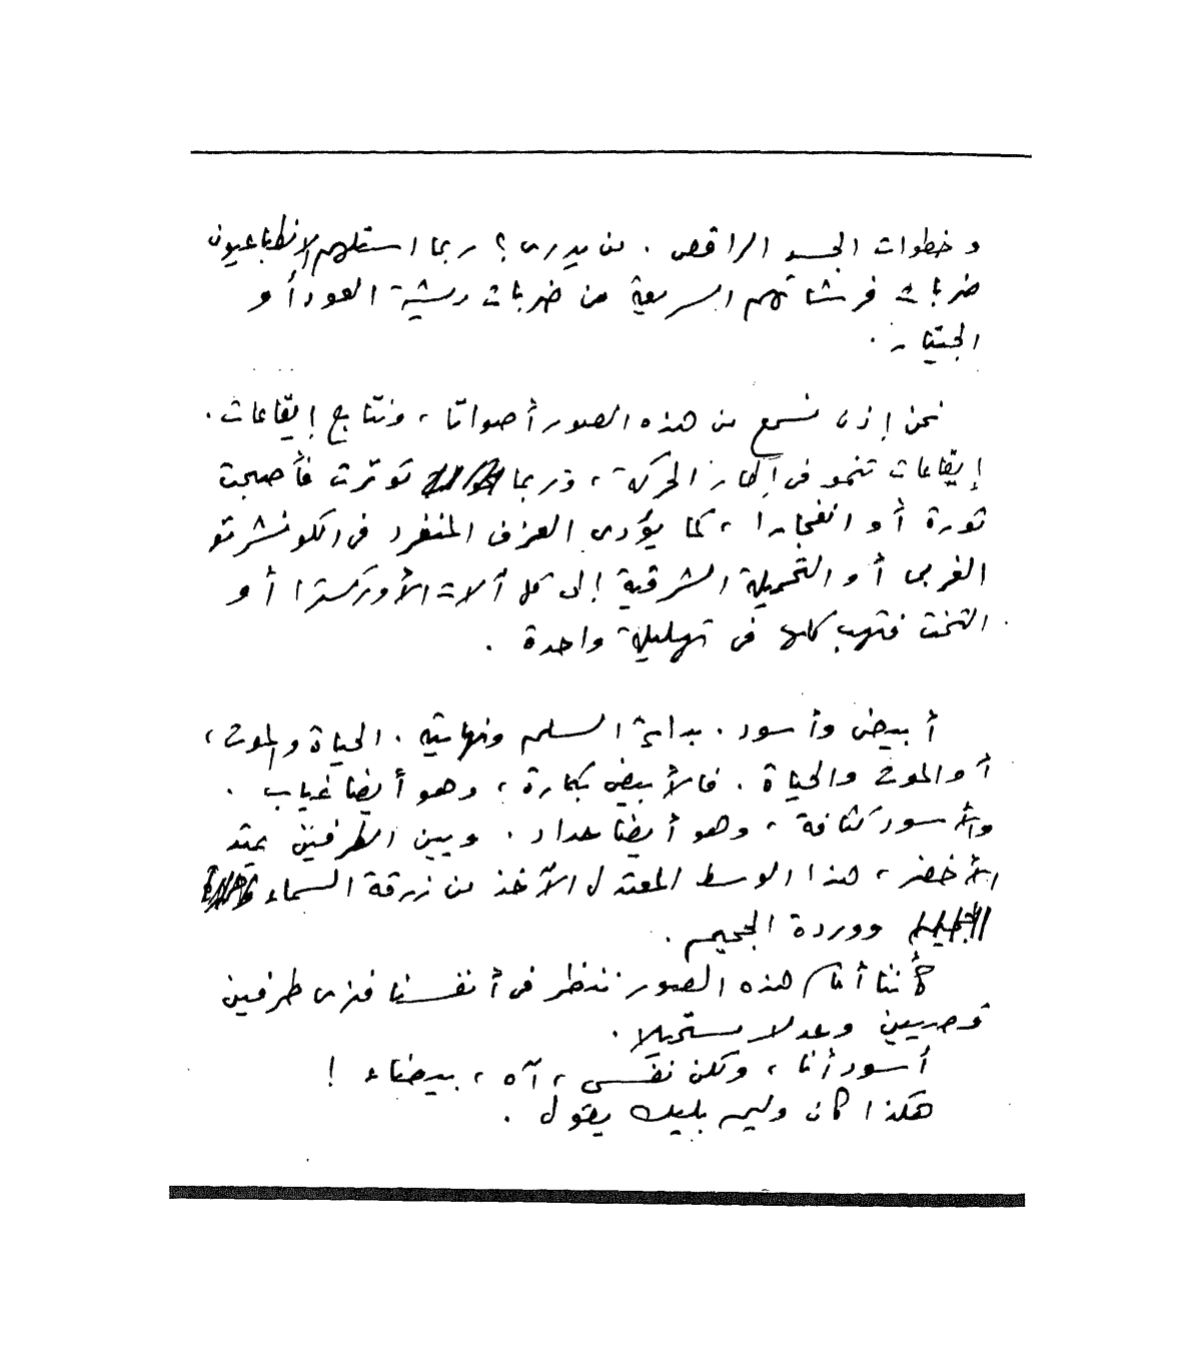 وخطوات الجسد الراقص . من يدرى ؟ ربما استلهم الانطباعيون
ضربات فرشاتهم السريعة من ضربات ريشة العود أو
الجيتار .
نحن إذن نسمع من هذه الصور أصواتا ، ونتابع إيقاعات .
إيقاعات تنمو فى إطار الحركة ، وربما توترت فأصبحت
ثورة أو انفجارا ، كما يؤدى العزف المنفرد فى الكونشرتو
الغربى أو التحميلة الشرقية إلى كل آلات الأوركسترا أو
التخت فتهب كلها فى تهليلة واحدة .
أبيض وأسود . بداية السلم ونهايته . الحياة والموت ،
أو الموت والحياة . فالأبيض بكارة ، وهو أيضا غياب .
والأسود كثافة ، وهو أيضا حداد . وبين الطرفين يمتد
الأخضر ، هذا الوسط المعتدل الآخذ من زرقة السماء
ووردة الجحيم .
كأننا أمام هذه الصور ننظر فى أنفسنا فنرى طرفين
قصيين وعدلا مستحيلا .
أسود أنا ، ولكن نفسى ، آه ، بيضاء !
هكذا كان وليم بليك يقول .